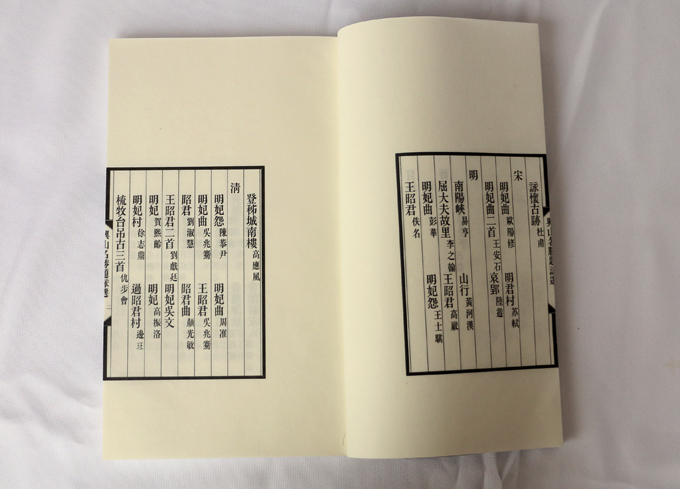 詠懷古跡 杜甫
宋
明妃曲 歐陽修 明君村 蘇軾
明妃曲二首 王安石 哀郢 陸游
明
南陽峽 易亨 山行 黃河漢
屈大夫故里 李之翰 王昭君 高巖
明妃曲 彭華 明妃怨 王士騏
王昭君 佚名
登秭城南樓 高應風
清
明妃怨 陳恭尹 明妃曲 周准
明妃曲 吳兆騫 王昭君 吳兆騫
昭君 劉淑慧 昭君曲 顏光敏
王昭君二首 劉獻廷 明妃 吳文
明妃 賀熙齡 明妃 高振洛
明妃村 徐志鼎 過昭君村
梳妝台吊古三首 仇步會